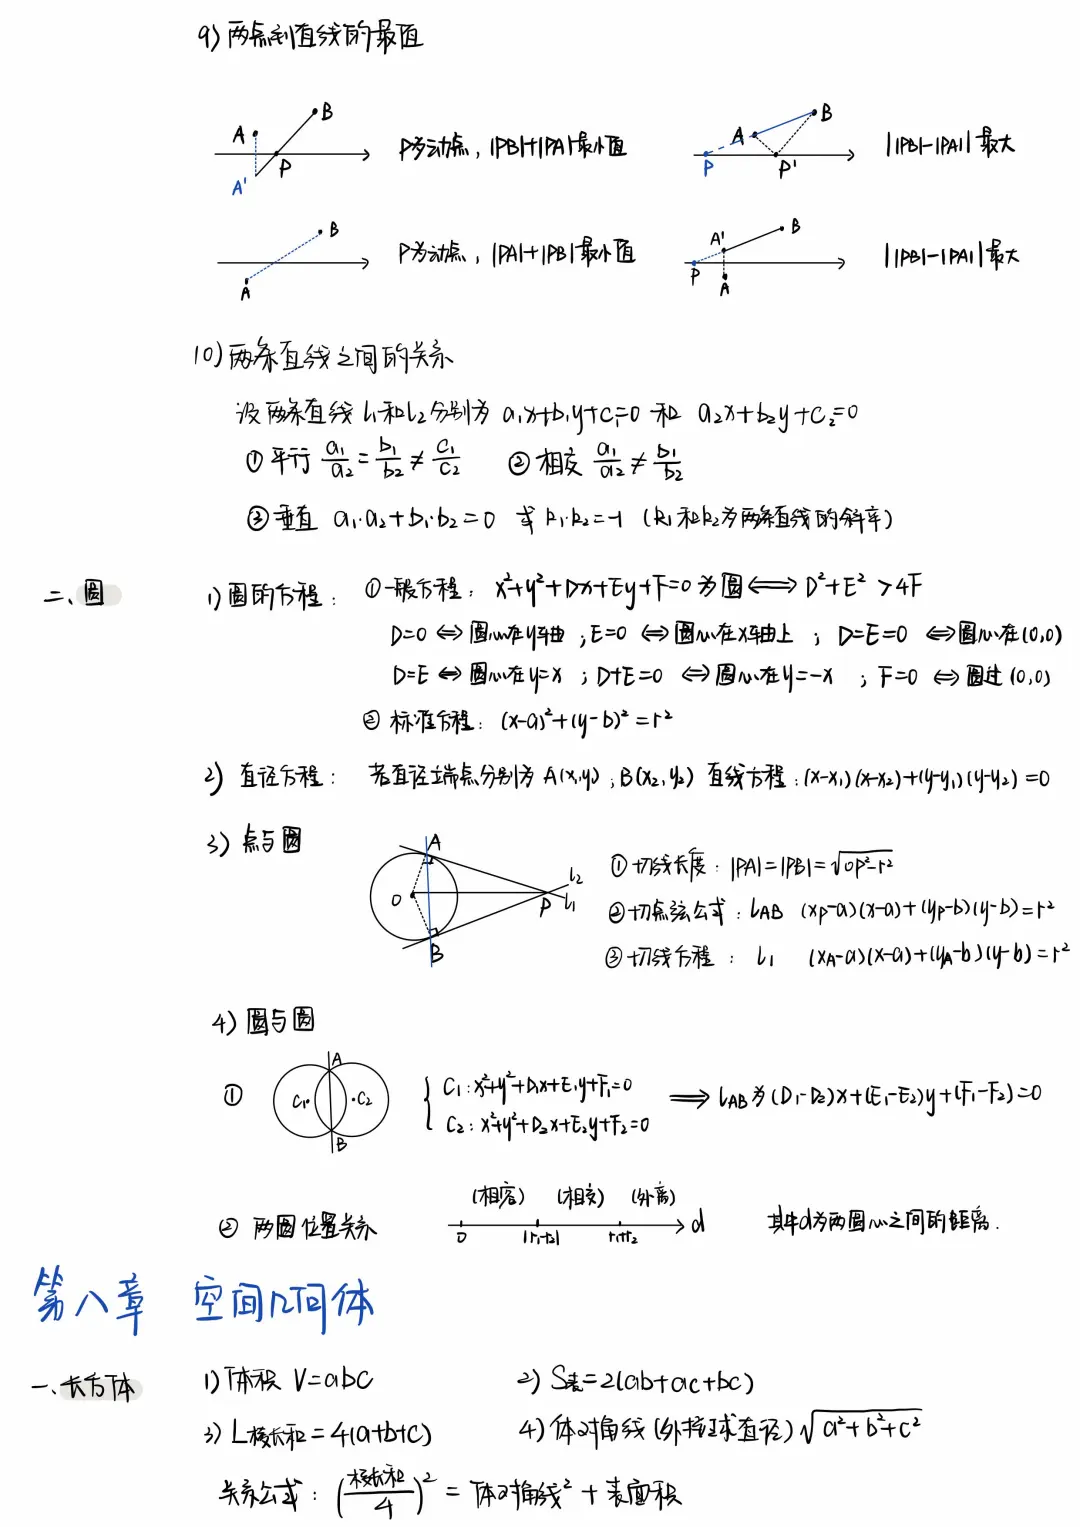 9) 两点到直线的最值
A B P A' P为动点，|PB|+|PA|最小值
A B P P' ||PB|-|PA||最大
A B P为动点，|PA|+|PB|最小值
A' B P A ||PB|-|PA||最大
10) 两条直线之间的关系
设两条直线 l₁和l₂分别为 a₁x+b₁y+c₁=0 和 a₂x+b₂y+c₂=0
① 平行 a₁/a₂ = b₁/b₂ ≠ c₁/c₂ ② 相交 a₁/a₂ ≠ b₁/b₂
③ 垂直 a₁·a₂+b₁·b₂=0 或 k₁·k₂=-1 (k₁和k₂为两条直线的斜率)
二、圆 1) 圆的方程： ①一般方程：x²+y²+Dx+Ey+F=0 为圆 ⟺ D²+E²>4F
D=0 ⇔ 圆心在y轴；E=0 ⇔ 圆心在x轴上；D=E=0 ⇔圆心在(0,0)
D=E ⇔ 圆心在y=x；D+E=0 ⇔圆心在y=-x；F=0 ⇔ 圆过(0,0)
② 标准方程：(x-a)²+(y-b)²=r²
2) 直径方程： 若直径端点分别为A(x,y)，B(x₂,y₂) 直线方程：(x-x₁)(x-x₂)+(y-y₁)(y-y₂)=0
3) 点与圆
A O B P l₂ l₁
①切线长度：|PA|=|PB|=√OP²-r²
②切点弦公式：lAB (xP-a)(x-a)+(yP-b)(y-b)=r²
③切线方程： l₁ (xA-a)(x-a)+(yA-b)(y-b)=r²
4) 圆与圆
① A C₁ C₂ B { C₁:x²+y²+D₁x+E₁y+F₁=0
C₂:x²+y²+D₂x+E₂y+F₂=0
⟹ lAB为(D₁-D₂)x+(E₁-E₂)y+(F₁-F₂)=0
(相容) (相交) (外离)
② 两圆位置关系 0 |r₁-r₂| r₁+r₂ d 其中d为两圆心之间的距离.
第八章 空间几何体
一、长方体 1) 体积 V=abc 2) S表=2(ab+ac+bc)
3) L棱长和=4(a+b+c) 4) 体对角线(外接球直径)√a²+b²+c²
关系公式：(棱长和/4)² = 体对角线² + 表面积